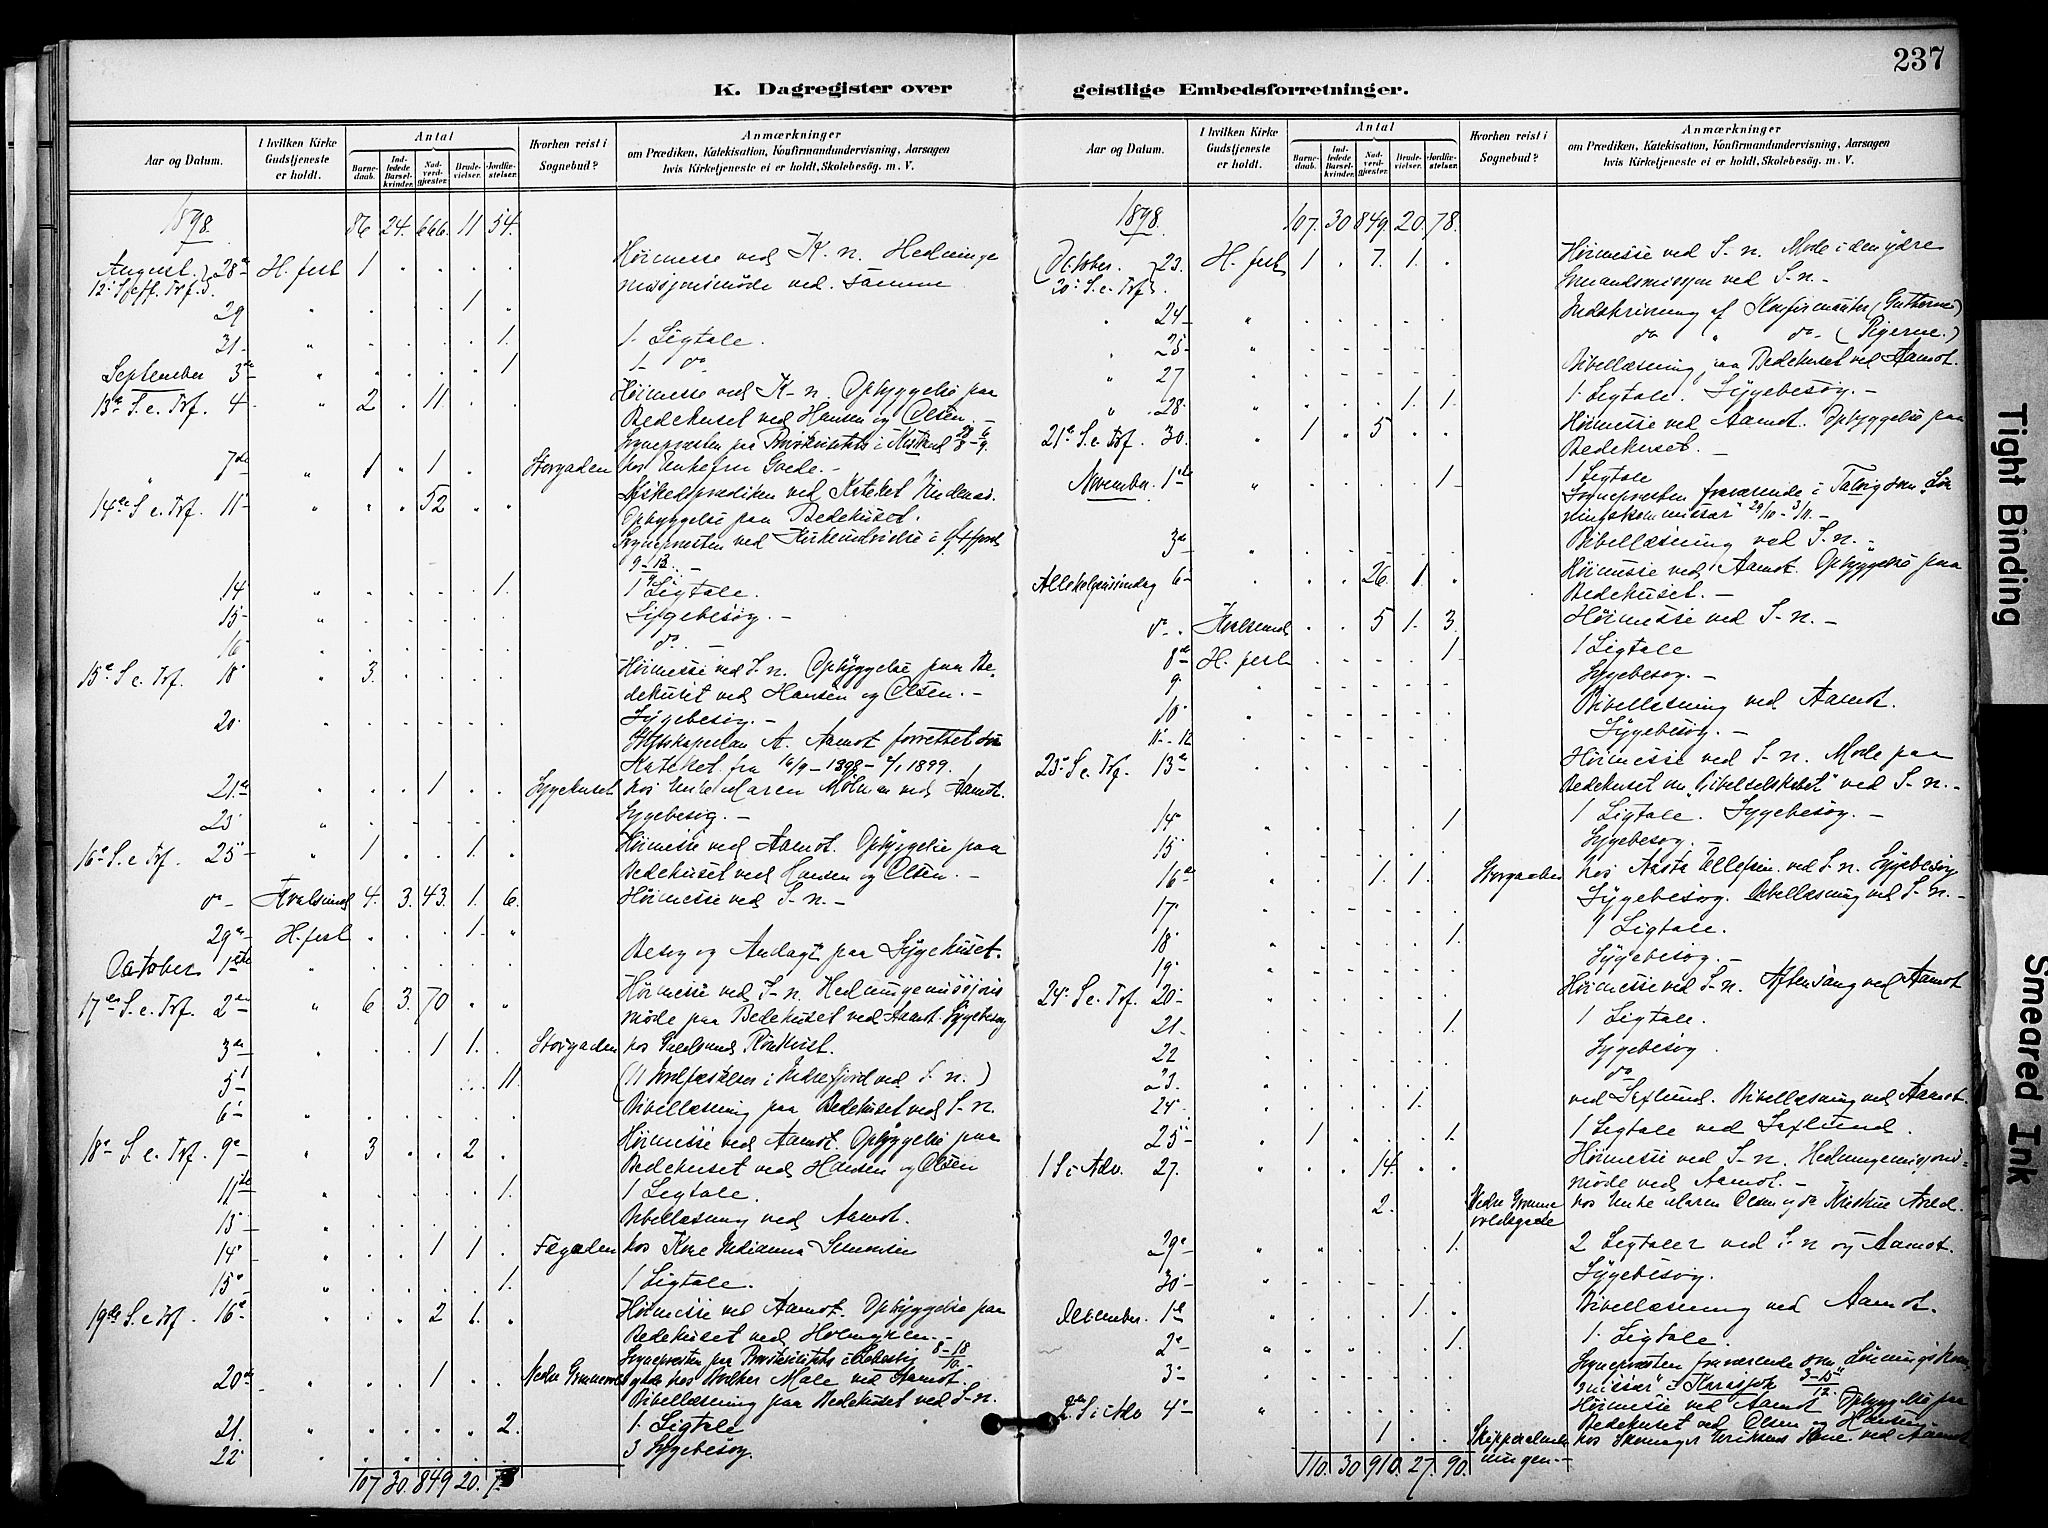 237
K. Dagregister over
Aar og Datum.
I hvilken Kirke Gudstjeneste er holdt.
Antal
Barnedaab.
Indledede Barselkvinder.
Nadverdgjester.
Brudevielser.
Jordfæstelser.
Hvorhen reist i Sognebud?
Anmærkninger
om Prædiken, Katekisation, Konfirmandundervisning, Aarsagen
hvis Kirketjeneste ei er holdt, Skolebesög. m. V.
1898. 86 24. 666. 11 54.
August 28de H. fest 1 . . . . Höimesse ved K. n. Hedninge
missionsmöde ved samme
29 " . . . 1 .
31- " . . . . 1. 1. Ligtale.
September 3de " . . . . 1 1- do
13de S. e. Trf. 4. " 2 . 11. . . Höimesse ved K-n. Opbyggelse paa
Bedehuset ved Hansen og Olsen. -
7de " 1 " 1 . . Storgaden hos Enkefru Goede. -
14de S. e. Trf. 11- " . . 52 . .
Opbyggelse paa Bedehuset.
Sognepresten ved Kirkeindvielse i
14 " . . . . 1. 1 Ligtale.
15- " . . . . . Sygebesög. -
16 do. -
15de S. e. Trf. 18 " 3. . . . . Höimesse ved S. n. Opbyggelse paa Be-
dehuset ved Hansen og Olsen. -
20. " . . . . . Sygebesög. -
Stiftskapellan A. Aamot forrettet som
Kateket fra 16/9 - 1898 - 1899.
21de " . . 1 . . Sygehuset hos Enke Maren ved Aamot.
23 " . . . . . Sygebesög. -
16de S. e. Trf. 25- " 1 . . 1. . Höimesse ved Aamot. Opbyggelse paa
Bedehuset ved Hansen og Olsen. -
do - Kvalsund 4. 3. 43. 1. 6. Höimesse ved S. n. -
29de H. fest . . . 1. "
October 1ste " . . . . . Besög og Andagt paa Sygehuset.
17de S. e. Trf. 2den " 6 3. 70 . . Höimesse ved S-n. Hedningemissions
möde paa Bedehuset ved Aamot. Sygebesög
3de " . . 1 1. . Storgaden hos
5- . . . . 11. (11 Jordfæstelser i ved S. n.)
6 " . . . . . Bibellæsning paa Bedehuset ved S-n.
18de S. e. Trf. 9- " 3 . . 2 . Höimesse ved Aamot. Opbyggelse paa
Bedehuset ved Hansen og Olsen
11te " . . . . 1. 1 Ligtale.
13 " . . . . . Bibellæsning ved Aamot.
14 " . . 1 1. . hos
15 " . . . . 1. 1 Ligtale.
19de S. e. Trf. 16de " . . 2 1. . Höimesse ved Aamot. Opbyggelse paa
Bedehuset ved Holmgren. -
20de " . . 1 . . ved Aamot.
Bibellæsning paa Bedehuset ved S-n.
21. " . . . . 2. 1. Ligtale
22 " . . . . . 3 Sygebesög.
107 30. 849 20. 78
geistlige Embedsforretninger.
Aar og Datum.
I hvilken Kirke Gudstjeneste er holdt.
Antal
Barnedaab.
Indledede Barselkvinder.
Nadverdgjester.
Brudevielser.
Jordfæstelser.
Hvorhen reist i Sognebud?
Anmærkninger
om Prædiken, Katekisation, Konfirmandundervisning, Aarsagen
hvis Kirketjeneste ei er holdt, Skolebesög. m. V.
1898. 107. 30 849. 20. 78.
October. 23. H. fest 1 . 7. 1. . Höimesse ved S. n. Möde i den ydre
20de S. e. Trf. Sömandsmission ved S. n. -
" 24- " Indskrivning af Konfirmanter (Gutterne)
" 25- " do " do (Pigerne.)
" 27 " Bibellæsning paa Bedehuset ved Aamot.
" 28. " . . . 1. 1. 1. Ligtale. Sygebesög. -
21de S. e. Trf. 30. " 1 . 5 . . Höimesse ved Aamot. Opbyggelse paa
Bedehuset. -
November. 1ste " . . . . 1- 1 Ligtale
Sognepresten fraværende i Talvig som "Löningskommissær" 29/10 - 3/11. -
3de " Bibellæsning ved S. n. -
Allehelgenssöndag 6- " . . 26. 1. . Höimesse ved Aamot. Opbyggelse paa
Bedehuset. -
do. Kvalsund . . 5 1. 3. Höimesse ved S-n. -
8de H. fest . . . . 1. 1 Ligtale
9. " Sygebesög. -
10 " Bibellæsning ved Aamot.
11-12 Sygebesög. -
23de S. e. Trf. 13de Höimesse ved S-n. Möde paa
Bedehuset om "Bibelselskabet" ved S-n. -
14 " . . . . 1. 1 Ligtale. Sygebesög. -
15 Sygebesög. -
16de " . . 1. 1. . Storgaden hos ved S. n. Sygebesög
17. " Sygebesög. Bibellæsning ved S-n. -
18 " . . . . 1. 1 Ligtale.
19 " Sygebesög. -
24de S. e. Trf. 20- " Höimesse ved S-n. Aftensang ved Aamot
21- " . . . . 1. 1 Ligtale.
22 " Sygebesög.
23. " do
24 " . . . 1. . ved Sexlund. Bibellæsning ved Aamot.
25- " 1 . . . 1. 1 Ligtale ved Sexlund.
1 S. i Adv. 27. " . . 14. . . Höimesse ved S-n. Hedningemissions-
möde ved Aamot. -
2. hos Enke Maren Olsen
29de " . . . . 1. 2 Ligtaler ved S-n og Aamot.
30 " Sygebesög.
December. 1ste " . . . 1. . Bibellæsning ved Aamot.
2de " . . . . 1. 1. Ligtale.
3- " Sognepresten fraværende som "Löningskommissær" i Karasjok
2den S. i Adv 4- " Höimesse ved Aamot Opbyggelse paa
Bedehuset ved Olsen og Hansen. -
1 . . ved Aamot
110. 30 910. 27. 90.
Tight Binding
Smeared Ink